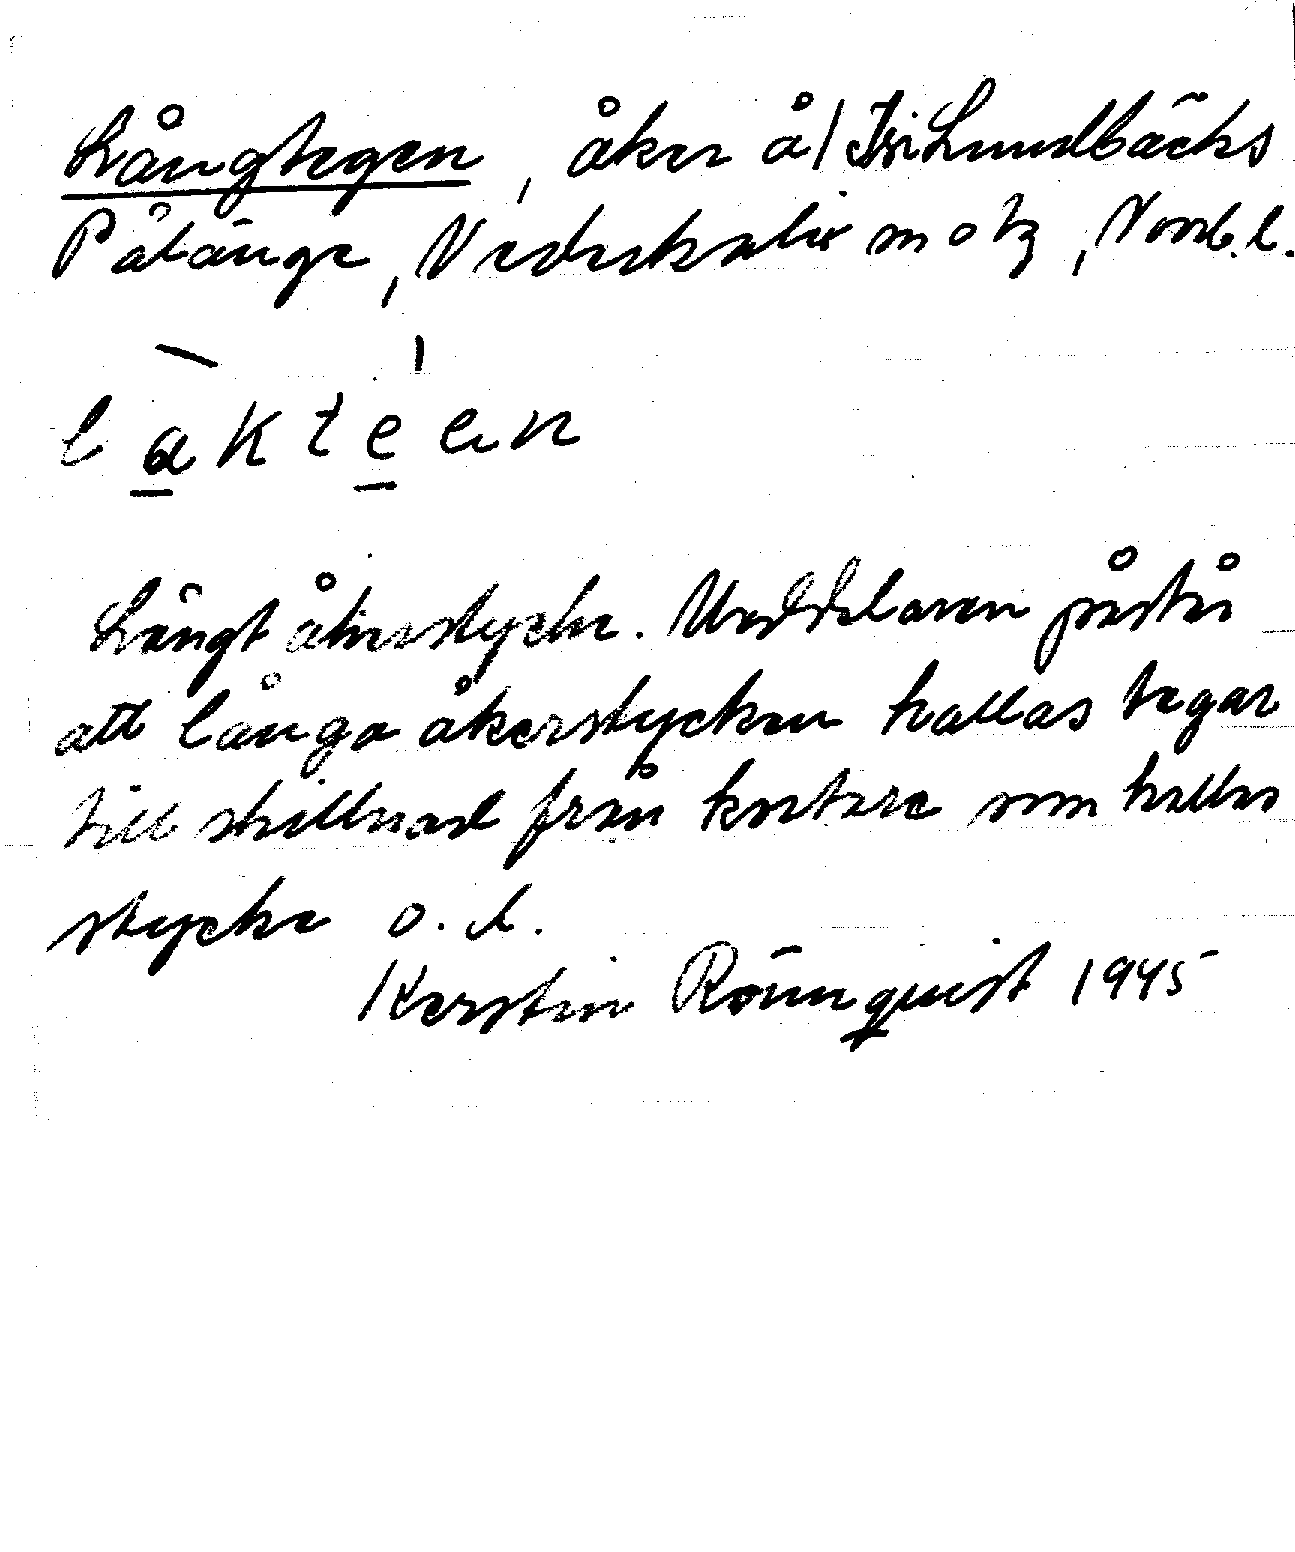 Långtegen, åker å/ Lundbäcks
Pålänge, Nederkalix motz, Norrb. l.
l a k t e e n
Långt åkerstycke. Meddelaren påstår
att långa åkerstycken kallas tegar
till skillnad från kortare som kallas
stycke o. d.
Kerstin Rönnquist 1945